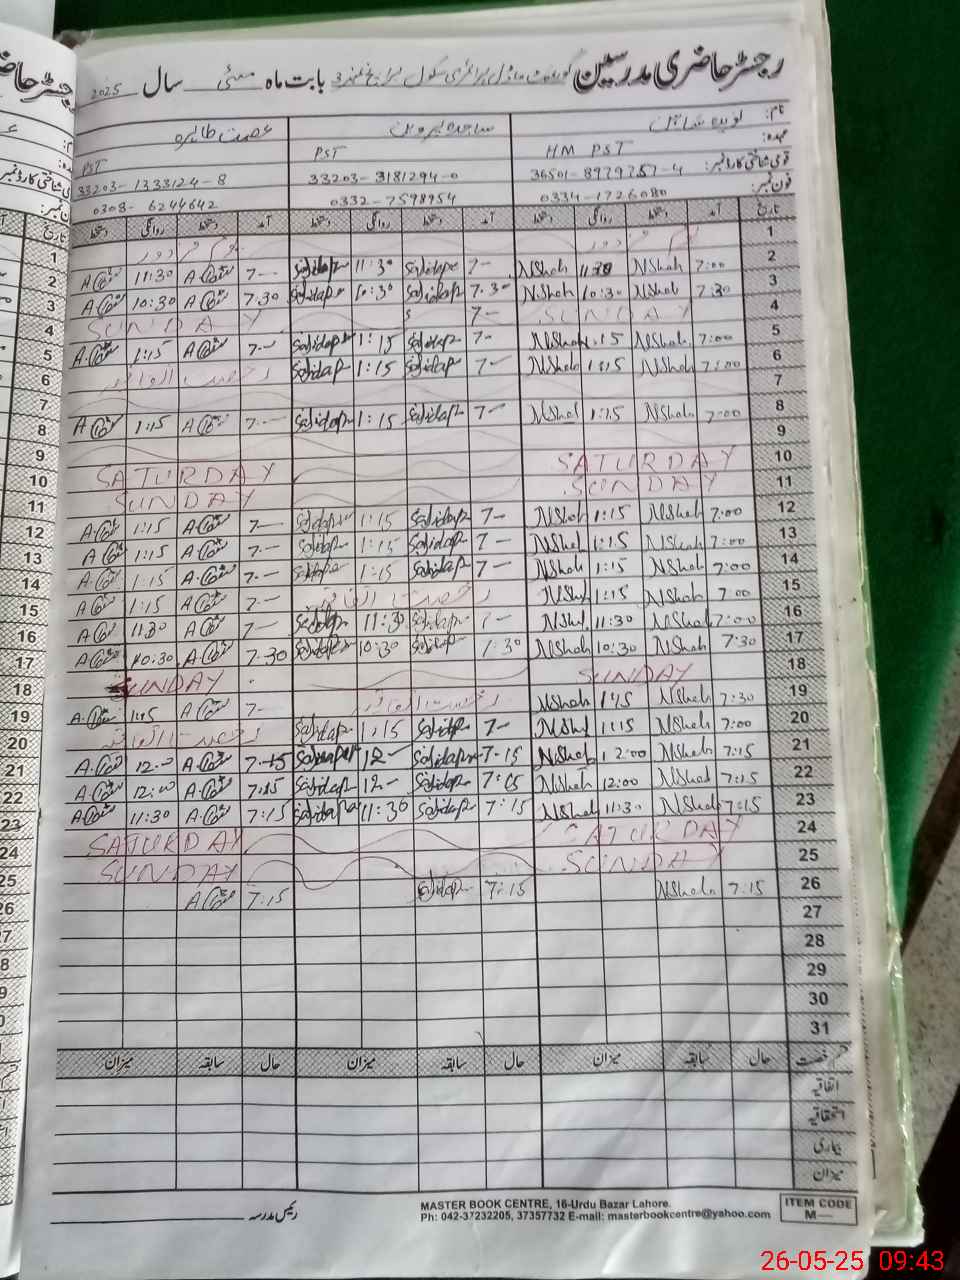 رجسٹر حاضری مدرسین گورنمنٹ ماڈل پرائمری سکول نمبر 3 بابت ماہ مئی سال 2025
نام: نویدہ شاہین ساجدہ پروین عصمت طاہرہ
عہدہ: HM PST PST PST
قومی شناختی کارڈ نمبر: 36501-8979757-4 33203-3181294-0 33203-1333124-8
فون نمبر: 0334-1726080 0332-7598954 0308-6244642
تاریخ آمد دستخط روانگی دستخط آمد دستخط روانگی دستخط آمد دستخط روانگی دستخط
1 یوم مزدور
2 7:00 NShah 11:30 NShah 7- Sajidap 11:30 Sajidap 7- 11:30
3 7:30 NShah 10:30 NShah 7.30 Sajidap 10:30 Sajidap 7.30 10:30
4 SUNDAY 7- SUNDAY
5 7:00 NShah 1:15 NShah 7- Sajidap 1:15 Sajidap 7- 1:15
6 7:00 NShah 1:15 NShah 7- Sajidap 1:15 Sajidap رخصت اتفاقیہ
7
8 7:00 NShah 1:15 NShah 7- Sajidap 1:15 Sajidap 7- 1:15
9
10 SATURDAY SATURDAY
11 SUNDAY SUNDAY
12 7:00 NShah 1:15 NShah 7- Sajidap 1:15 Sajidap 7- 1:15
13 7:00 NShah 1:15 NShah 7- Sajidap 1:15 Sajidap 7- 1:15
14 7:00 NShah 1:15 NShah 7- Sajidap 1:15 Sajidap 7- 1:15
15 7:00 NShah 1:15 NShah رخصت اتفاقیہ 7- 1:15
16 7:00 NShah 11:30 NShah 7- Sajidap 11:30 Sajidap 7- 11:30
17 7:30 NShah 10:30 NShah 7:30 Sajidap 10:30 Sajidap 7.30 10:30
18 SUNDAY SUNDAY
19 7:30 NShah 1:15 NShah رخصت اتفاقیہ 7- 1:15
20 7:00 NShah 1:15 NShah 7- Sajidap 1:15 Sajidap رخصت اتفاقیہ
21 7:15 NShah 12:00 NShah 7-15 Sajidap 12- Sajidap 7-15 12:00
22 7:15 NShah 12:00 NShah 7:15 Sajidap 12- Sajidap 7:15 12:00
23 7:15 NShah 11:30 NShah 7:15 Sajidap 11:30 Sajidap 7:15 11:30
24 SATURDAY SATURDAY
25 SUNDAY SUNDAY
26 7:15 NShah 7:15 Sajidap 7:15
27
28
29
30
31
قسم رخصت حال سابقہ میزان حال سابقہ میزان حال سابقہ میزان
اتفاقیہ
استحقاقیہ
بیماری
میزان
رئیس مدرسہ
MASTER BOOK CENTRE, 16-Urdu Bazar Lahore.
Ph: 042-37232205, 37357732 E-mail: masterbookcentre@yahoo.com
ITEM CODE
M—
26-05-25 09:43